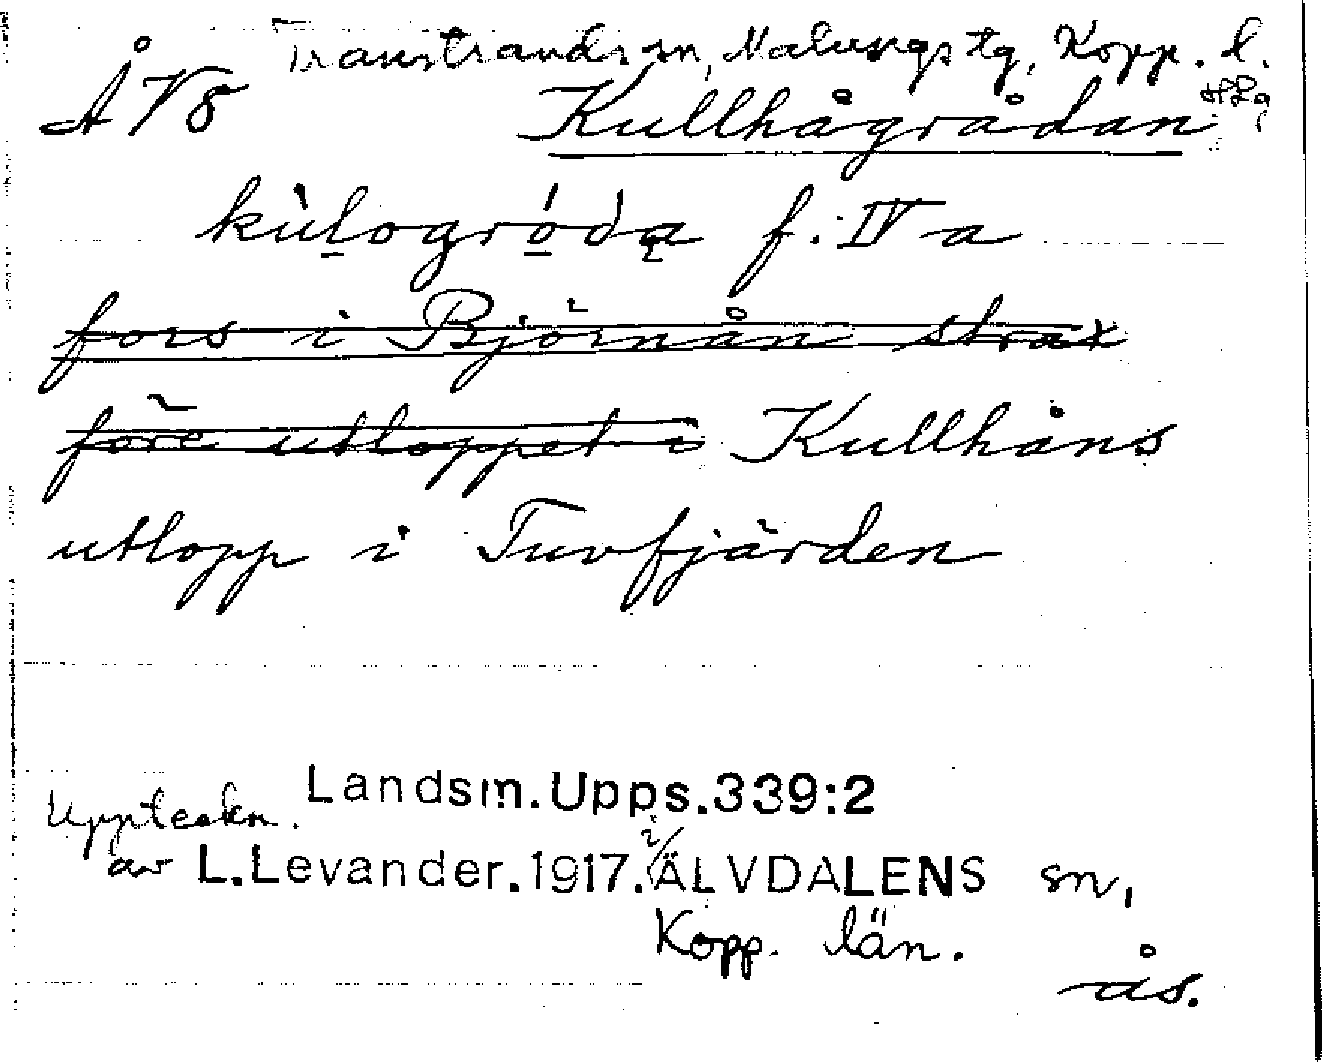 Transtrands sn, Malungs tg, Kopp. l.
Å V8 Kullhågrådan
kùlogróda f. IV a
fors i Björnån strax
före utloppet i Kullhåns
utlopp i Tuvfjärden
Landsm. Upps. 339:2
Uppteckn.
av L. Levander. 1917. i ÄLVDALENS sn,
Kopp. län.
ås.